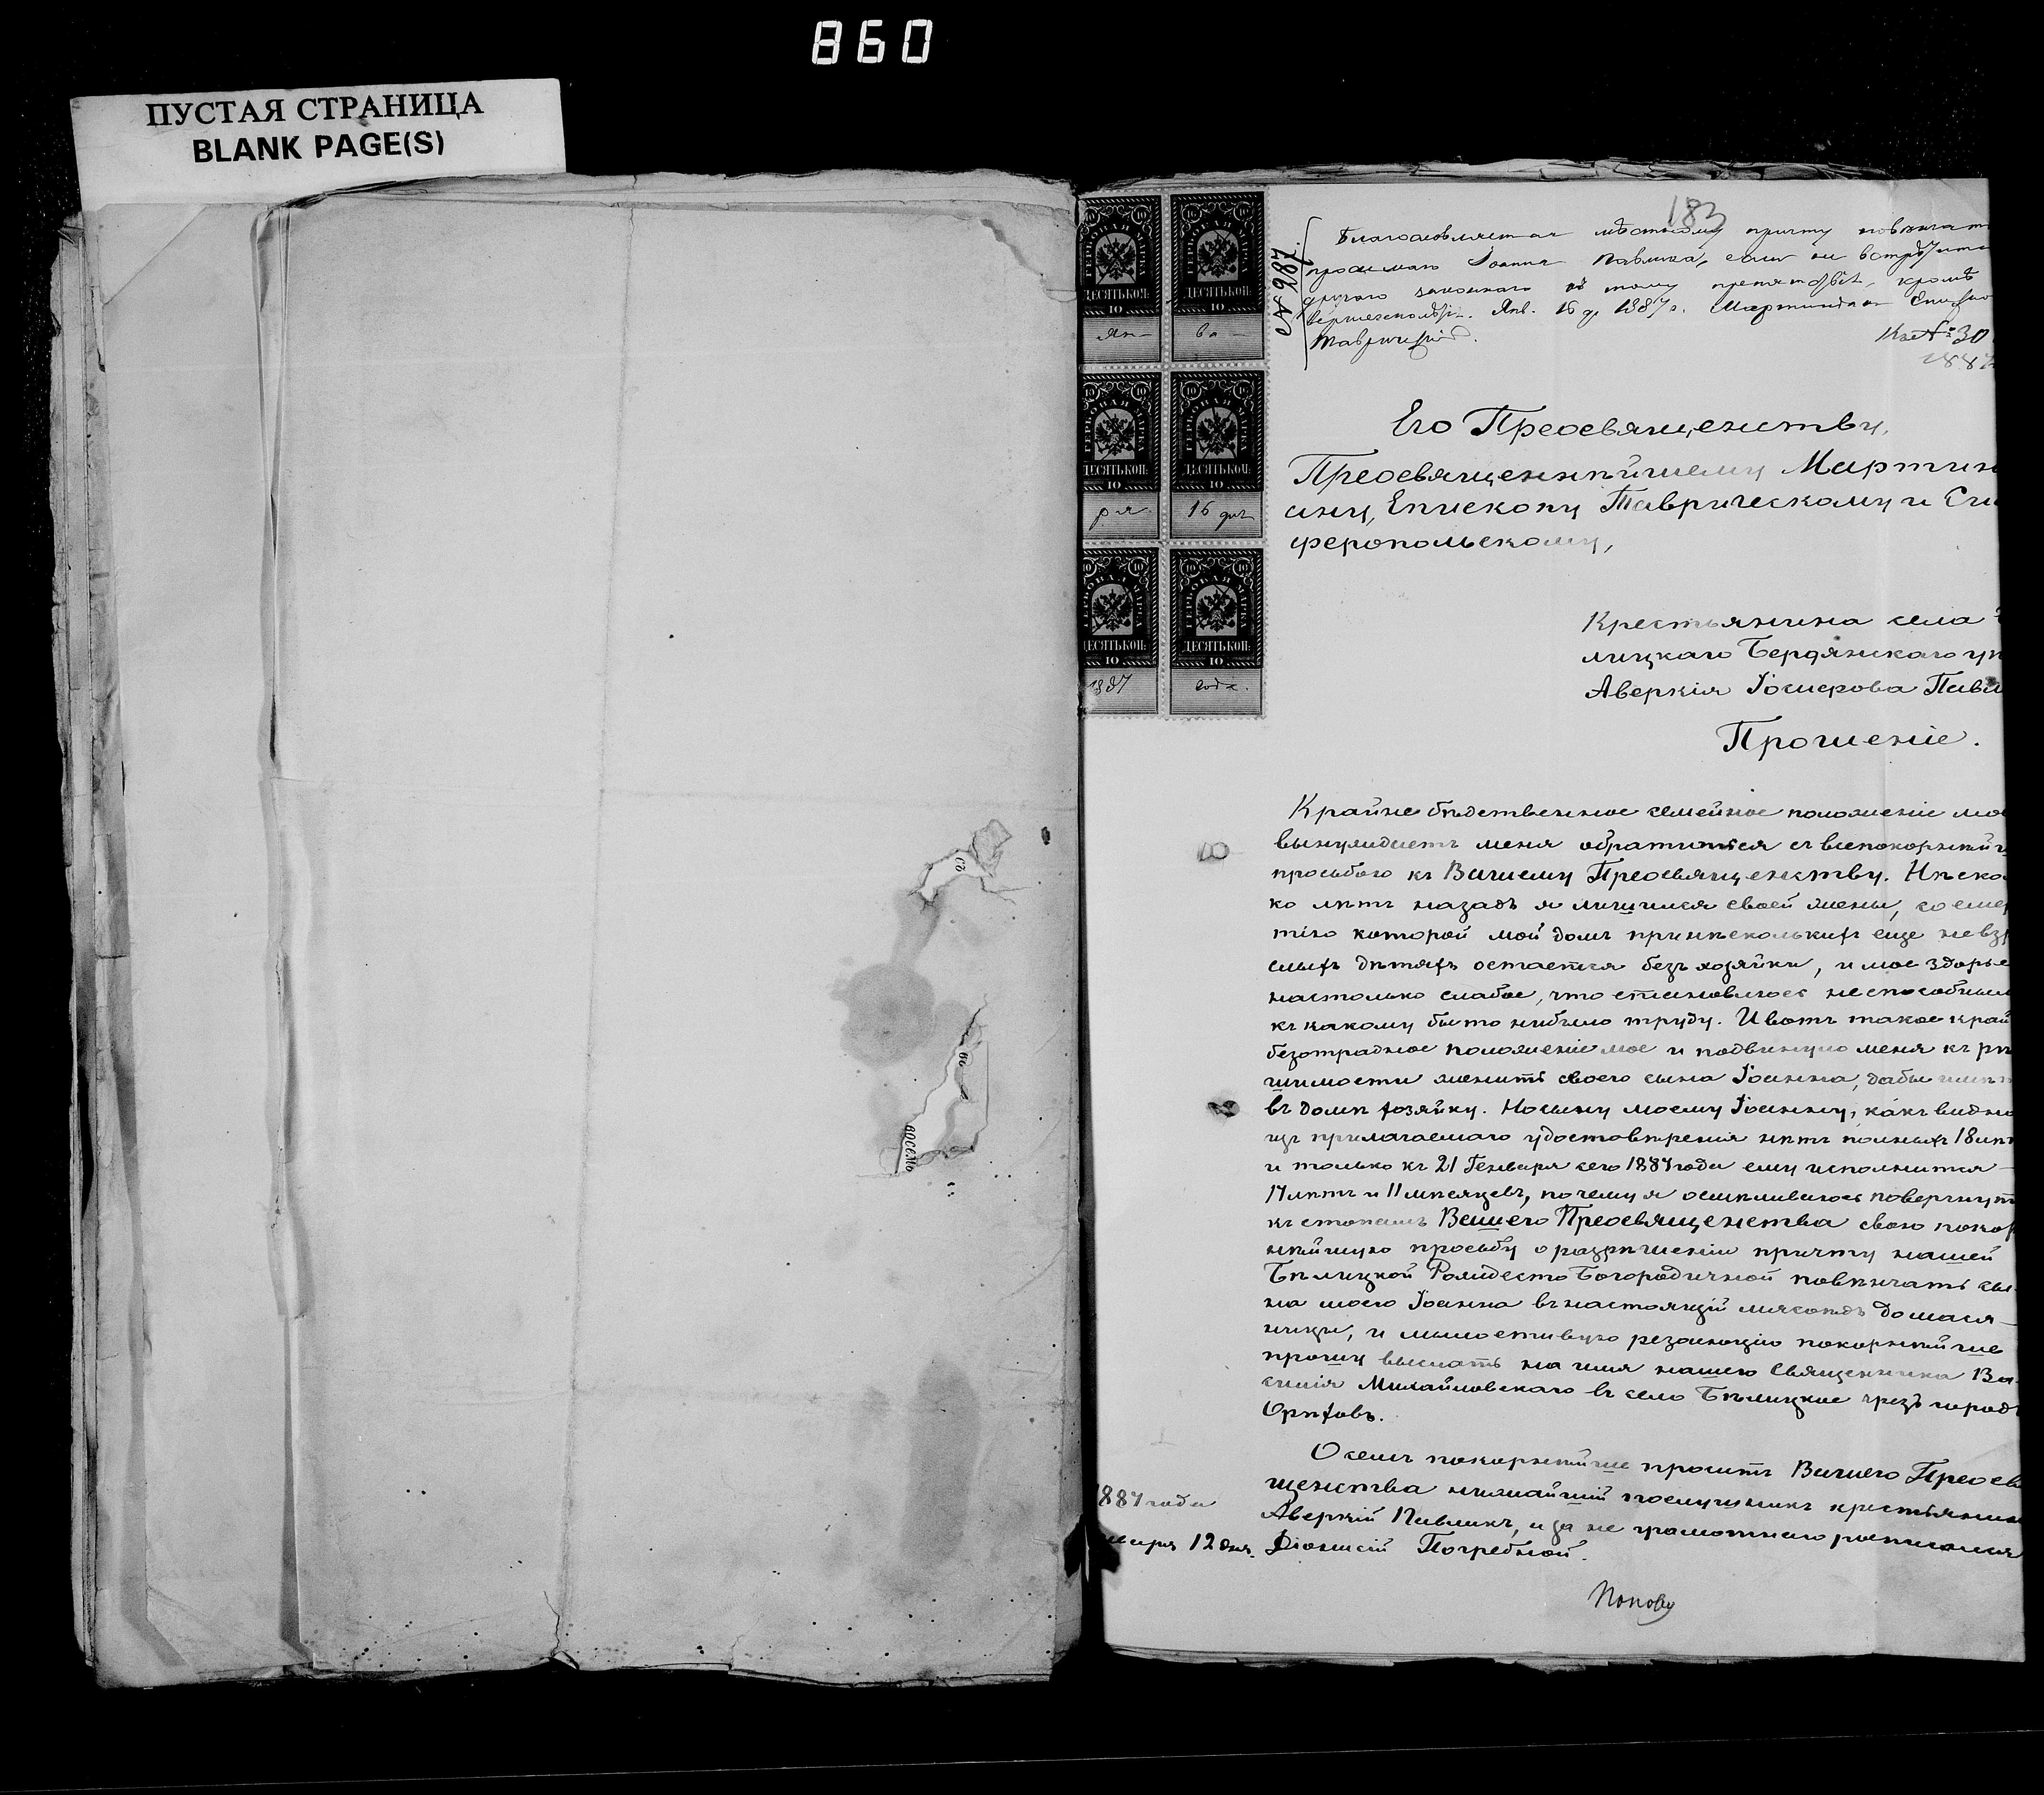 860
ПУСТАЯ СТРАНИЦА
BLANK PAGE(S)
съ
во
восемь
183
№ 287.
Благословляется мѣстному причту повѣнчать
просимаго Іоанна Павлика, если не встрѣтится
другого законнаго къ тому препятствія, кромѣ
Янв. 16 д. 1887 г. Мартиніанъ Епископ
Таврическій.
№ 30
1887
ГЕРБОВАЯ МАРКА
ДЕСЯТЬ КОП:
10
Ян
ва
ГЕРБОВАЯ МАРКА
ДЕСЯТЬ КОП:
10
ря
16 дня
ГЕРБОВАЯ МАРКА
ДЕСЯТЬ КОП:
10
1887
года.
Его Преосвященству,
Преосвященнѣйшему Мартині
ану, Епископу Таврическому и Сим
феропольскому,
Крестьянина села Бѣ
лицкаго Бердянскаго уѣ
Аверкія Іосифова Павли
Прошеніе.
Крайне бѣдственное семейное положеніе мое
вынуждаетъ меня обратиться съ всепокорнѣйш
просьбою къ Вашему Преосвященству. Нѣсколь
ко лѣтъ назадъ я лишился своей жены, со смер
тію которой мой домъ при нѣсколькихъ еще невзро
слыхъ дѣтяхъ остается безъ хозяйки, и мое здоровье
настолько слабое, что становлюсь неспособным
къ какому бы то ни было труду. И вотъ такое край
безотрадное положеніе мое и подвинуло меня къ рѣ
шимости женить своего сына Іоанна, дабы имѣть
въ домѣ хозяйку. Но сыну моему Іоанну, какъ видно
изъ прилагаемаго удостовѣренія нѣтъ полныхъ 18 лѣт
и только къ 21 Генваря сего 1887 года ему исполнится
17 лѣтъ и 11 мѣсяцевъ, почему я осмѣливаюсь повергнуть
къ стопамъ Вашего Преосвященства свою покор
нѣйшую просьбу о разрѣшеніи причту нашей
Бѣлицкой Рождество Богородичной повѣнчать сы
на моего Іоанна въ настоящій мясоѣдъ до масля
ницы, и милостивую резолюцію покорнѣйше
прошу выслать на имя нашего священника Ва
силія Михайловскаго въ село Бѣлицкое чрезъ городъ
Орѣховъ.
О семъ покорнѣйше проситъ Вашего Преосвя
щенства нижайшій послушникъ крестьянин
Аверкій Павликъ, и за не грамотнаго росписался
Діонисій Погребной.
1887 года
Генваря 12 дня.
Попову